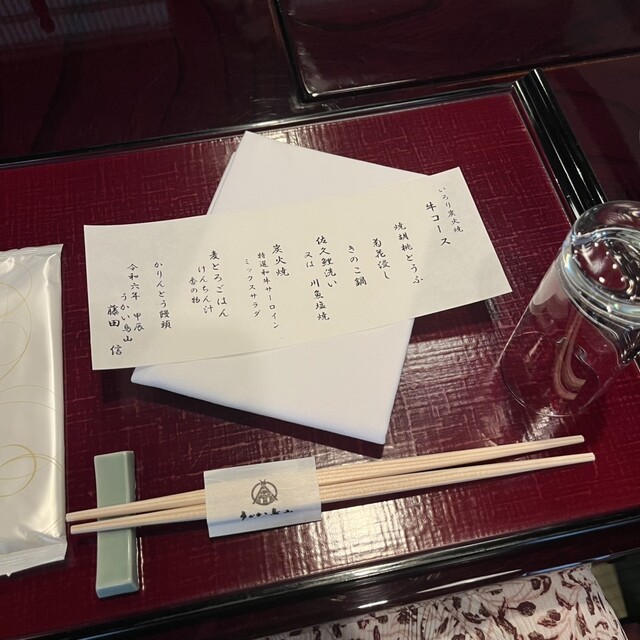 いろり炭火焼
牛コース
焼胡桃とうふ
菊花浸し
きのこ鍋
佐久鯉洗い
又は 川魚塩焼
炭火焼
特選和牛サーロイン
ミックスサラダ
麦とろごはん
けんちん汁
香の物
かりんとう饅頭
令和六年 甲辰
うかい鳥山
藤田 信
うかい鳥山